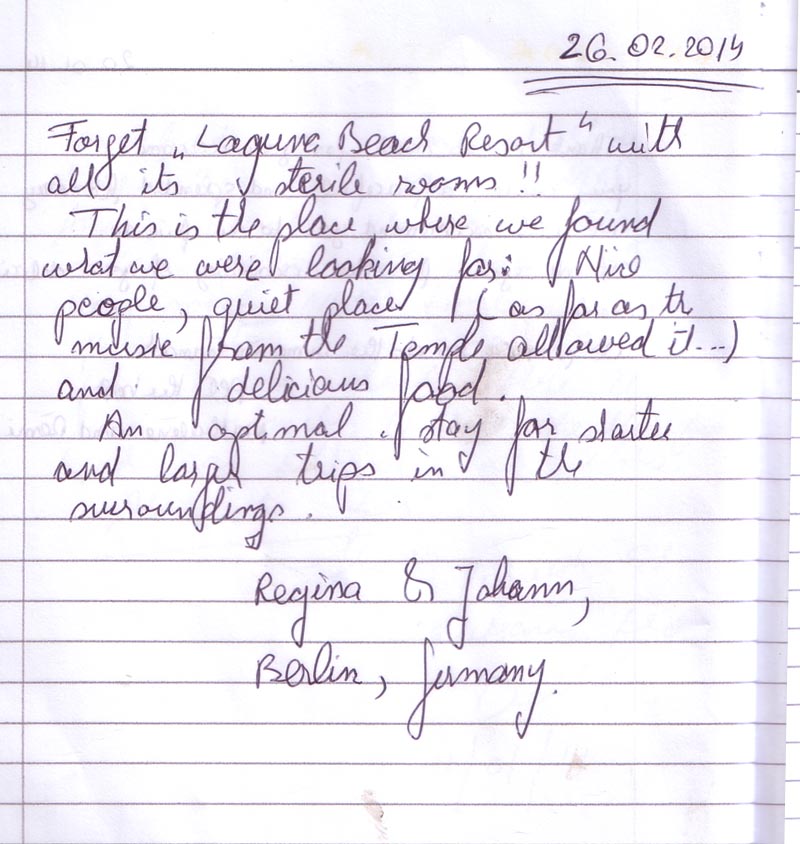 26.02.2014
Forget „Laguna Beach Resort“ with
all its sterile rooms !!
This is the place where we found
what we were looking for: Nice
people, quiet place (as far as the
music from the Temple allowed it...)
and delicious food.
An optimal stay for
and trips in the
surroundings.
Regina & Johann,
Berlin, Germany.